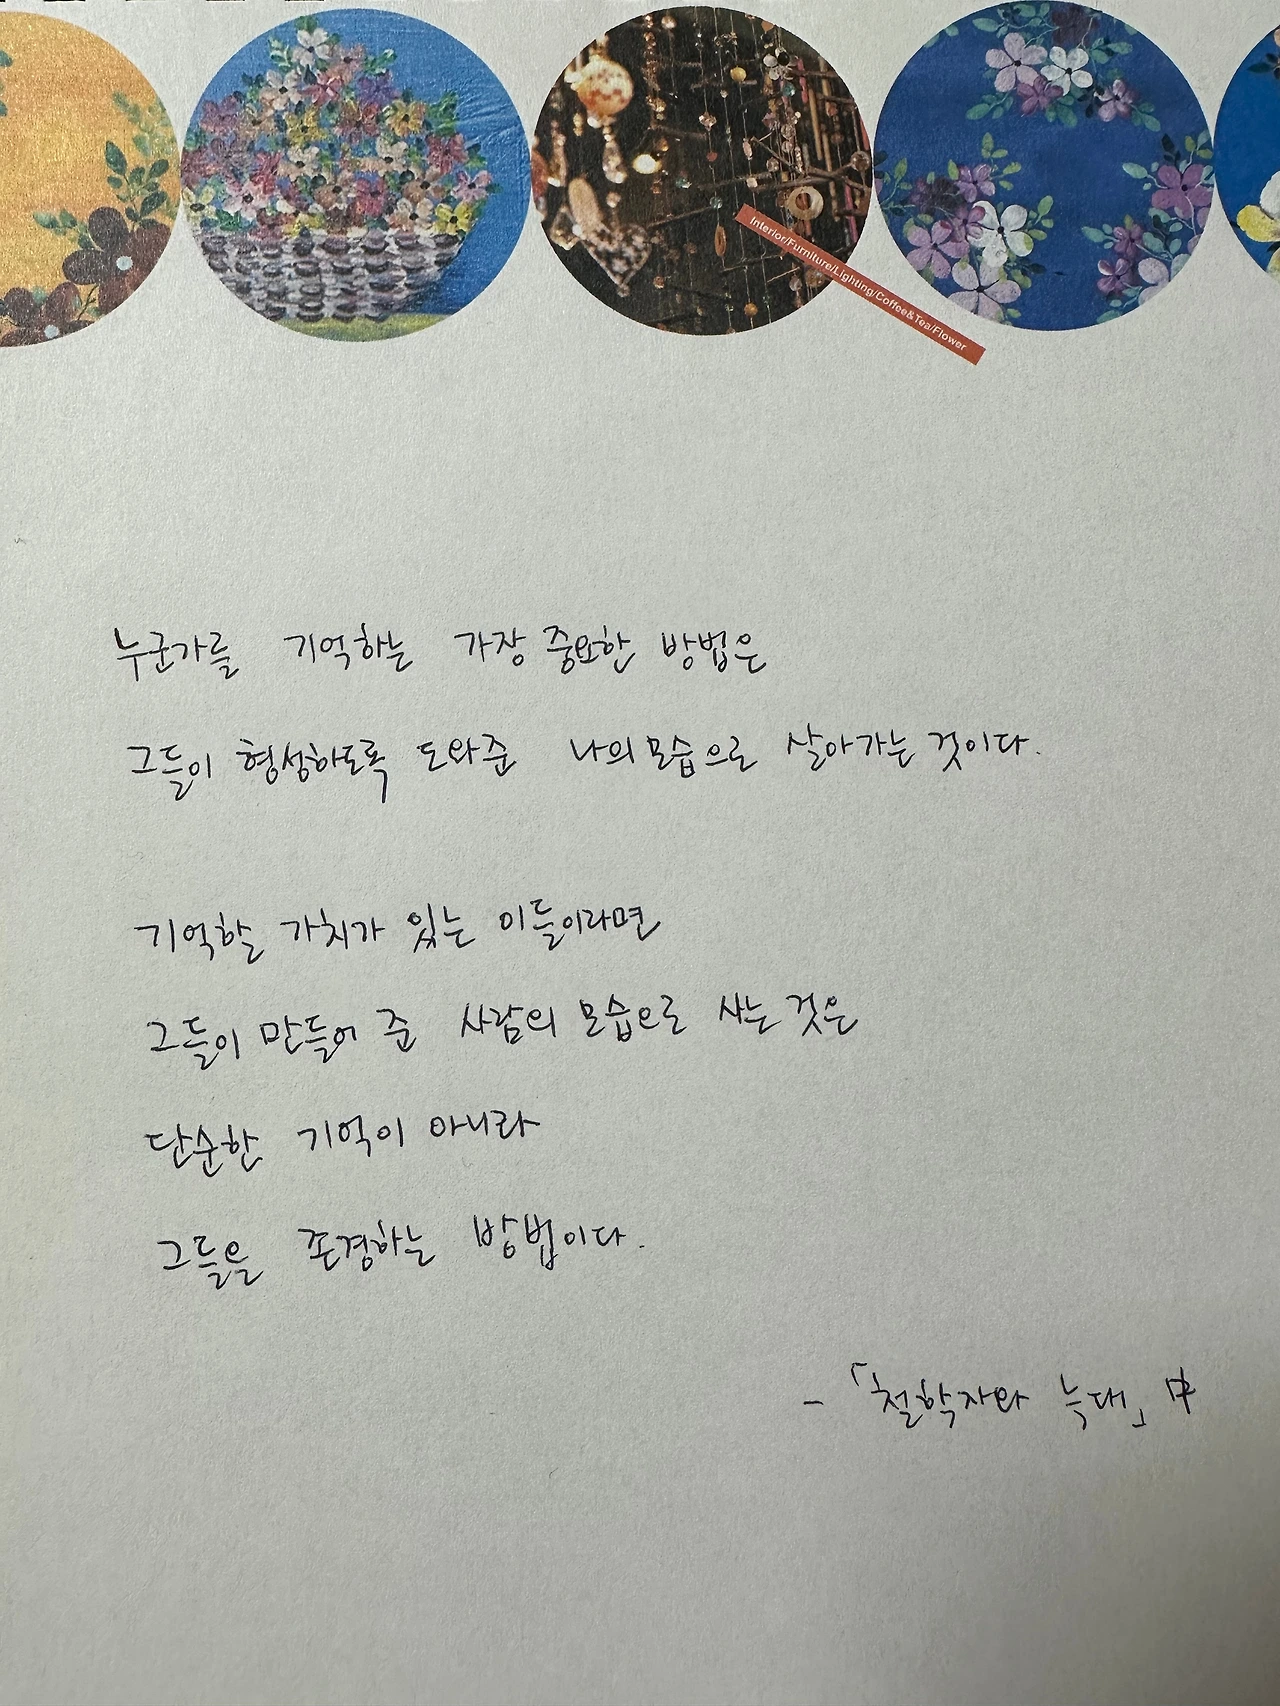 Interior/Furniture/Lighting/Coffee&Tea/Flower
누군가를 기억하는 가장 중요한 방법은
그들이 형성하도록 도와준 나의 모습으로 살아가는 것이다.
기억할 가치가 있는 이들이라면
그들이 만들어 준 사람의 모습으로 사는 것은
단순한 기억이 아니라
그들을 존경하는 방법이다.
- 「철학자와 늑대」 中